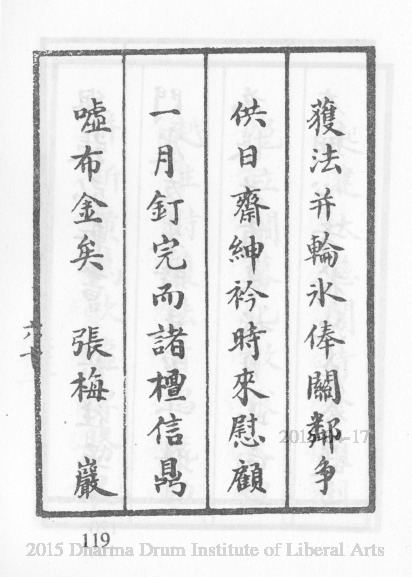 獲法并輪水俸關鄰爭
供日齋紳衿時來慰顧
一月釘完而諸檀信曷
噓布金矣　張梅巖
六十
119
2015 Dharma Drum Institute of Liberal Arts